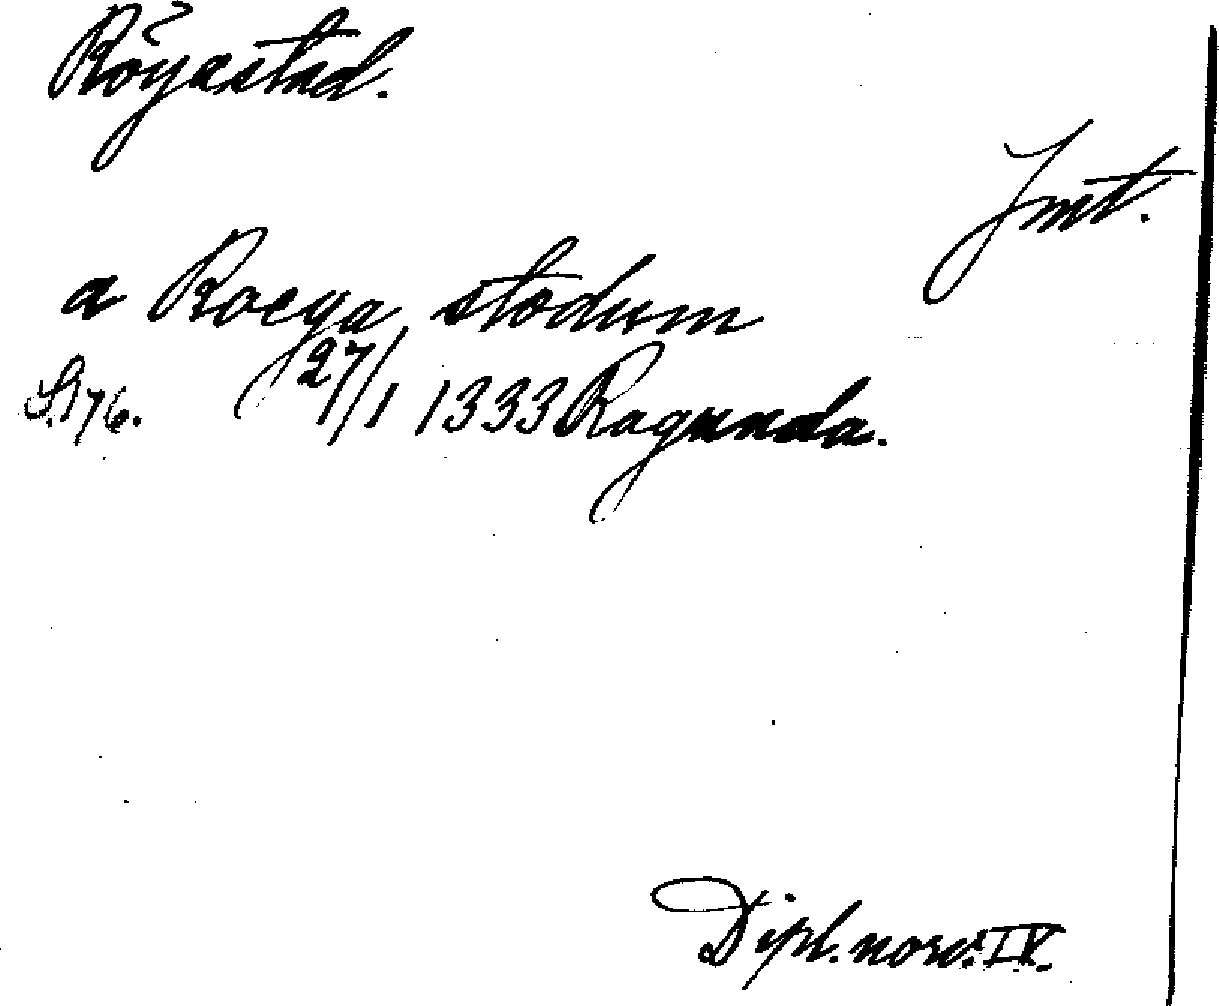 Röyastad.
Jmt.
a Roeya stodum
S. 176. 27/1 1333 Ragunda.
Dipl. norv. IV.